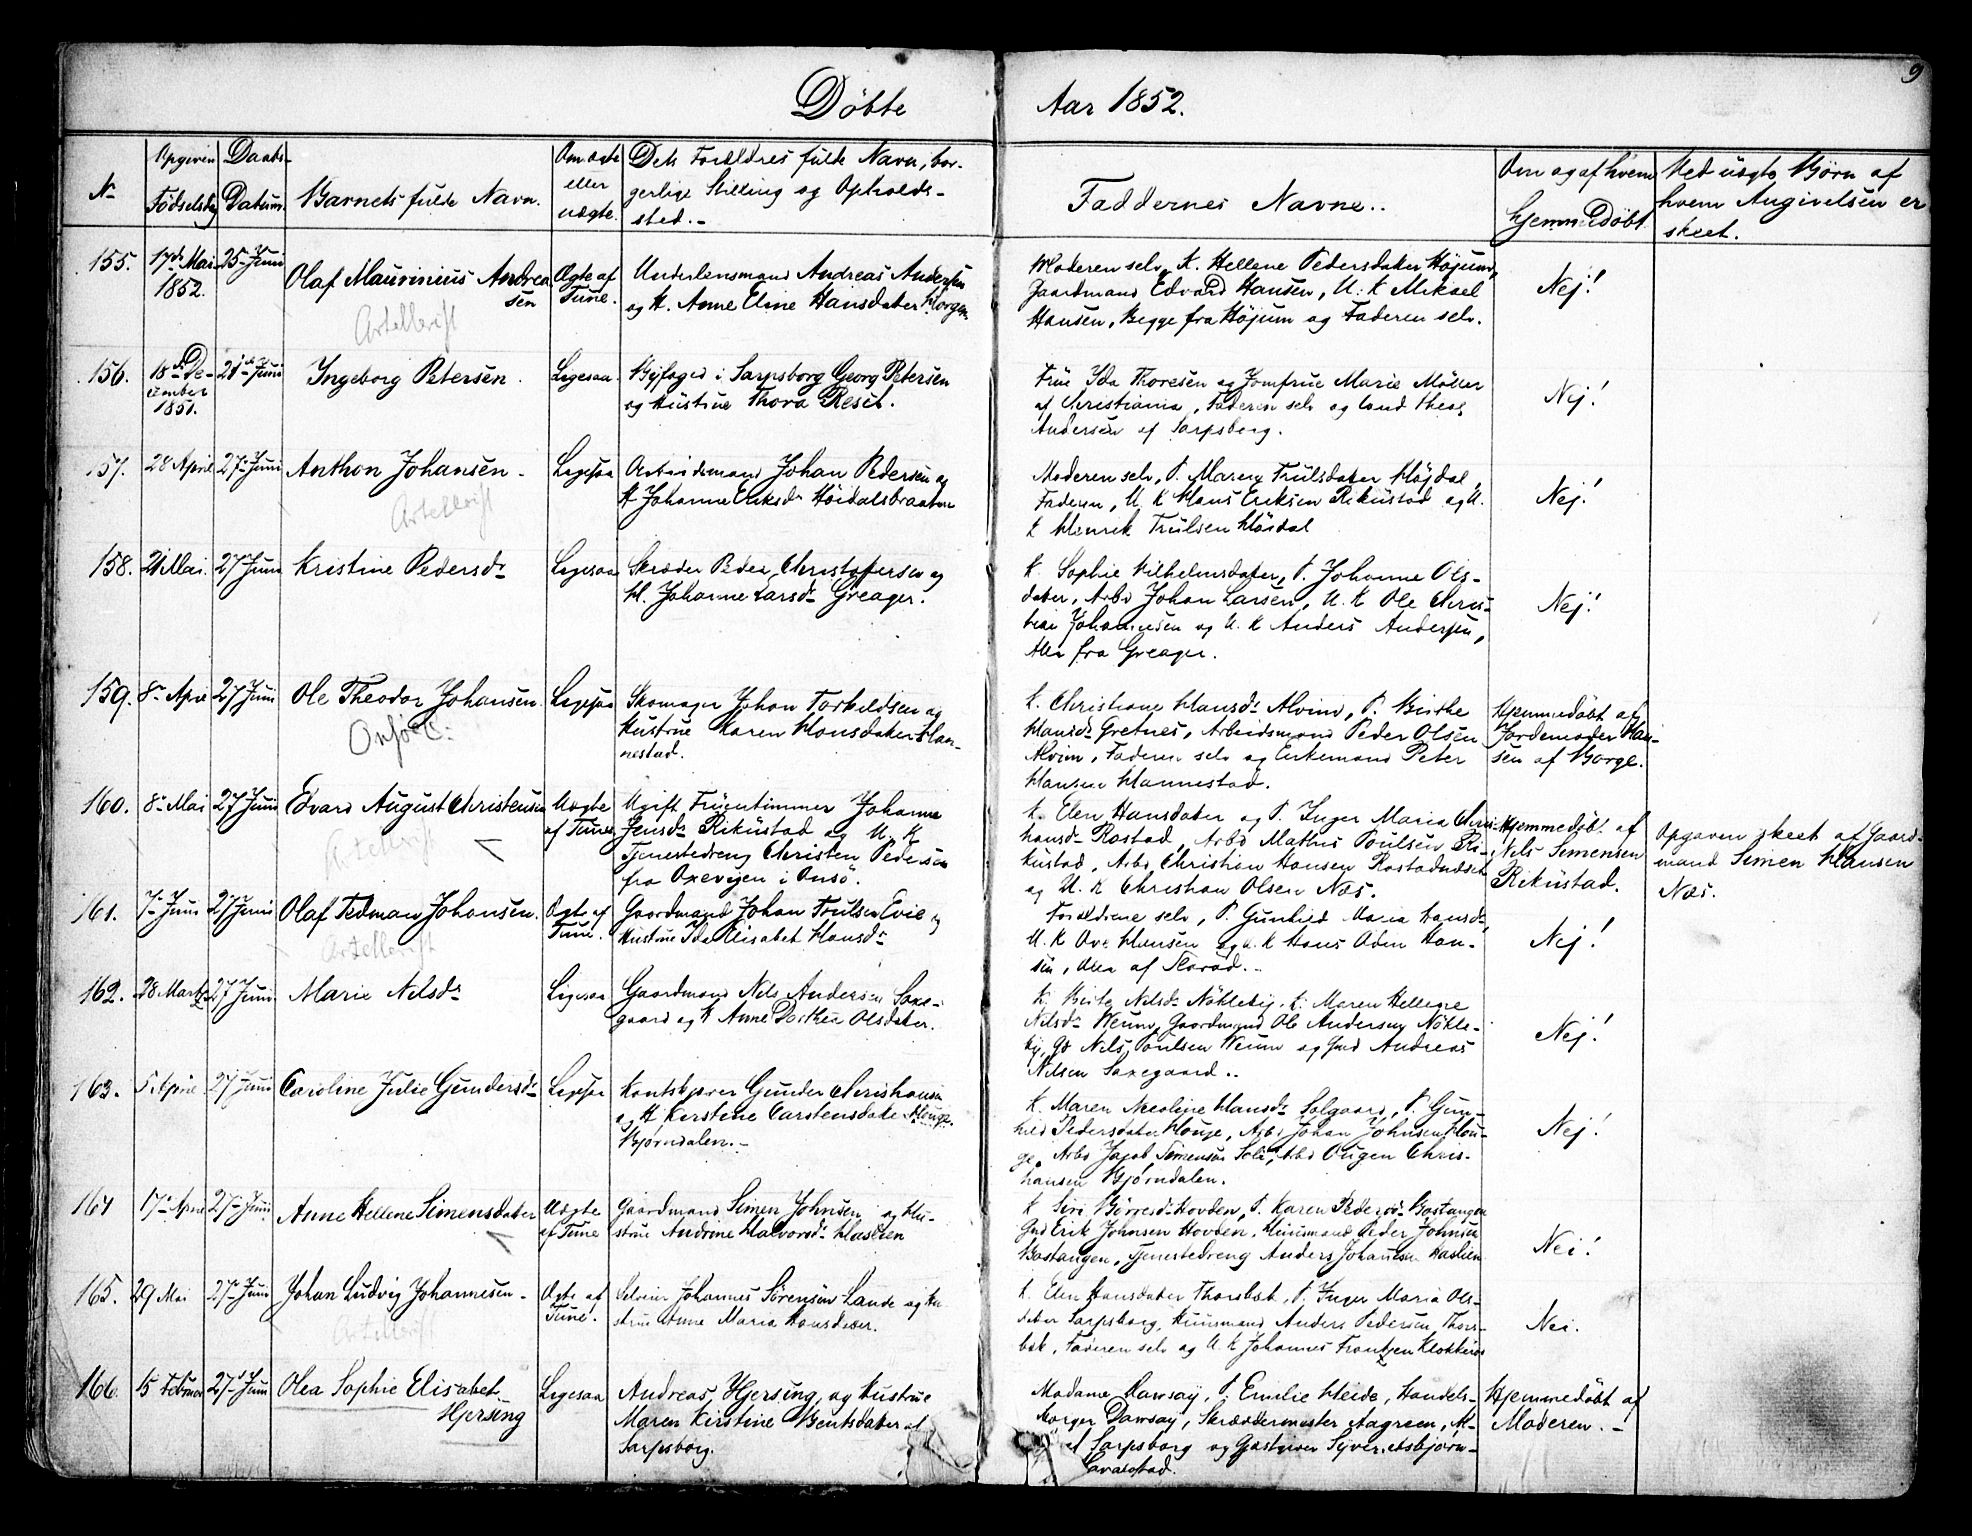 9
Døbte Aar 1852.
No
Opgiven Fødselsdag
Daabs-Datum.
Barnets fulde Navn.
Om ægte eller uægte.
Dets Forældres fulde Navn, bor-
gerlige Stilling og Opholds-
sted.-
Faddernes Navne..
Om og af hvem
hjemmedøbt
Ved uægte Børn af
hvem Angivelsen er
skeet.
155. 17de Mai 1852. 25 Juni
Olaf Maurinius Andrea
sen
Artellerist
Ægte af
Tune.
Underlensmand Andreas Andersen
og H. Anne Eline Hansdatter Borgen
Moderen selv, K. Hellene Pedersdatter Højum,
Gaardmand Edvard Hansen, U. K Mikael
Hansen, Begge fra Højum og Faderen selv.
Nej!
156. 18de De-
cember
1851. 21de Juni
Ingeborg Petersen.
Ligesaa.
Byfoged i Sarpsborg Georg Petersen
og Hustrue Thora Resel.
Frue Ida Thoresen og Jomfrue Marie Møller
af Christiania, Faderen selv og Cand theol
Andersen af Sarpsborg.
Nej!
157. 28 April 27 Juni
Anthon Johansen -
Artellerist
Ligesaa
Arbeidsmand Johan Pedersen og
H Johanne Eriksdr Höidalsbraaten
Moderen selv, P. Maren Trulsdatter Højdal,
Faderen, U. K Hans Eriksen Rikustad og U.
K Henrik Trulsen Höidal
Nej!
158. 21 Mai. 27 Juni
Kristine Pedersdr
Ligesaa
Skræder Peder Christofersen og
H. Johanne Larsdr Greager.
K. Sophie Vilhelmsdatter, P. Johanne Ols-
datter, Arbd Johan Larsen, U. K Ole Chris-
tian Johannesen og U. K Anders Andersen,
Alle fra Greager.
Nej!
159. 8 April 27 Juni
Ole Theodor Johansen.
Ligesaa
Skomager Johan Torkildsen og
Hustrue Karen Hansdatter Han-
nestad.
K. Christiane Hansdr Alvim, P. Birthe
Hansdr Gretnes, Arbeidsmand Peder Olsen
Alvim, Faderen selv og Enkemand Peter
Hansen Hannestad.
Hjemmedöbt af
Jordemoder Han-
sen af Borge.
160. 8 Mai 27 Juni
Edvard August Christensen
Artellerist
Uægte
af Tune
Ugift Fruentimmer Johanne
Jensdr Rikustad og U. K
Tjenestedreng Christen Pedersen
fra Oxevigen i Onsö.
K. Elen Hansdatter og P. Inger Maria Chris-
hansdr Rostad, Arbd Mathis Poulsen Ri-
kustad, Arbd Christian Hansen Rostad
og U. K Christian Olsen Næs.
Hjemmedöbt af
Nils Simensen
Rikustad.
Opgaven skeet af Gaard-
mand Simen Hansen
Næs.
161. 7 Juni 27 Juni
Olaf Tidman Johansen.
Artellerist
Ægte af
Tune.
Gaardmand Johan Poulsen Evie og
Hustrue Ida Elisabet Hansdr
Forældrene selv, P. Gunhild Maria Hansdr,
U. K Ove Hansen og U. K Hans Aden Han-
sen, Alle af
Nej!
162. 28 Marts 27 Juni
Marie Nilsdr
Ligesaa
Gaardmand Nils Andersen Saxe-
gaard og K Anne Dorthea Olsdatter.
K. Birte Nilsdr Nökleby, K. Maren Hellene
Nilsdr Weum, Gaardmand Ole Andersen Nökle-
by, Gd Nils Poulsen Weum og Gmd Andreas
Nilsen Saxegaard..
Nej!
163. 5 April 27 Juni
Caroline Julie Gundersdr
Ligesaa
Kontskjærer Gunder Christiansen
og H Kirstine Carstensdatter Houge.
Bjørndalen.-
K. Maren Nicoline Hansdr Solgaard, P. Gun-
hild Pedersdatter Houge, Arbd Johan Johnsen Hou-
ge, Arbd Jacob Simensen Solie, Arbd Ougen Chris-
tiansen Bjørndalen.
Nej!
164 17 April 27 Juni
Anne Hellene Simensdatter
Uægte
af Tune
Gaardmand Simen Johnsen og Hu-
strue Andrine Halvorsdr Haslien
K Siri Börresdr Hovden, P. Karen Pedersdr Bastangen
Gmd Erik Johnsen Hovden, Huusmand Peder Johnsen
Bastangen, Tjenestedreng Anders Johansen Haslien
Nei!
165. 29 Mai 27 Juni
Johan Ludvig Johannesen -
Artellerist
Ægte af
Tune.
Selveier Johannes Sörensen Lande og Hu
strue Anne Maria Hansdatter.
K. Elen Hansdatter Thorsbek, P. Inger Maria Ols-
datter Sarpsborg, Huusmand Anders Pedersen Thors-
bek, Faderen selv og U. K Johannes Frantzen
Nei.
166. 15 Februar 27 Juni
Olea Sophie Elisabet
Hjersing
Ligesaa
Andreas Hjersing og Hustrue
Maren Kirstine Bentsdatter af
Sarpsborg.
Madame Dawsay, P. Emilie Heide, Handels-
Borger Dawsay, Skræddermester Aagreen, A-
af Sarpsborg og Gastgiver Syver
Hjemmedöbt af
Moderen. -